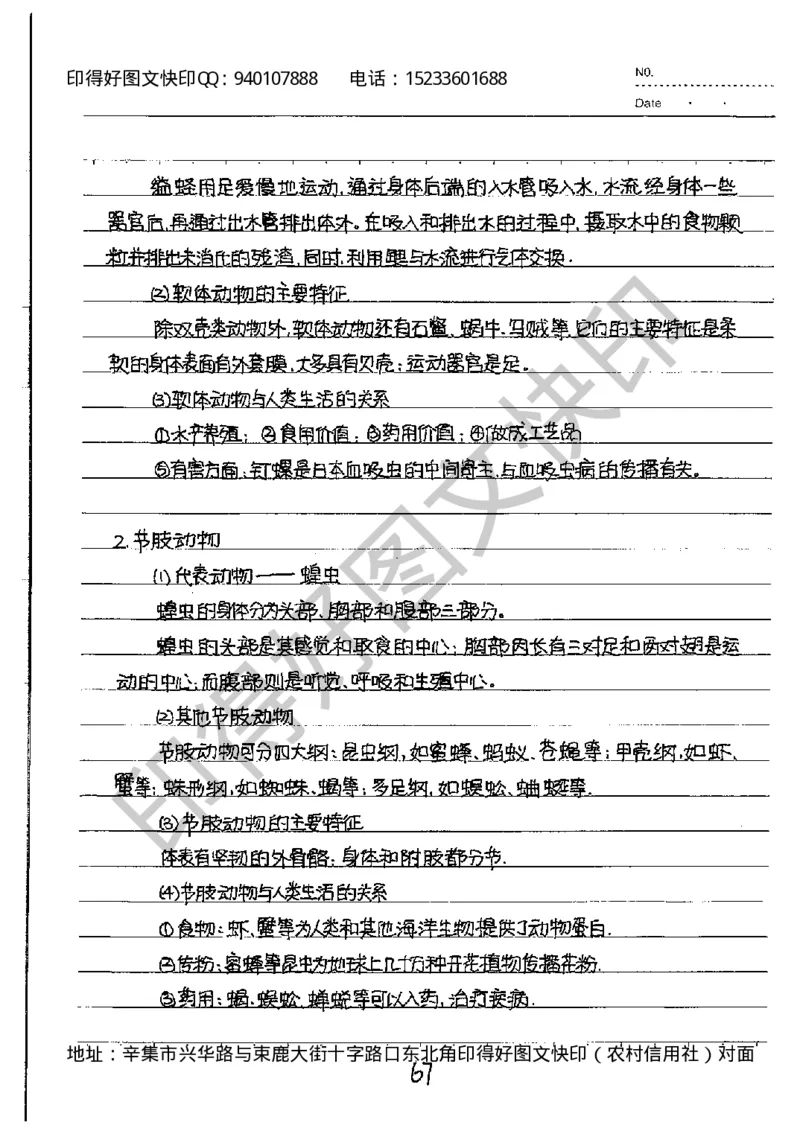 印得好图文快印QQ：940107888 电话：15233601688
NO.
Date
缢蛏用足爱慢地运动，通过身体后端的入水管吸入水，水流经身体一些
器官后，再通过出水管排出体外。在吸入和排出水的过程中，摄取水中的食物颗
粒并排出未消化的残渣，同时，利用鳃与水流进行气体交换.
(2)软体动物的主要特征
除双壳类动物外，软体动物还有石鳖、蜗牛、乌贼等，它们的主要特征是柔
软的身体表面有外套膜，大多具有贝壳；运动器官是足。
(3)软体动物与人类生活的关系
①水产养殖；②食用价值；③药用价值；④做成工艺品
⑤有害方面：钉螺是日本血吸虫的中间寄主，与血吸虫病的传播有关。
2.节肢动物
(1)代表动物——蝗虫
蝗虫的身体分为头部、胸部和腹部三部分。
蝗虫的头部是其感觉和取食的中心；胸部因长有三对足和两对翅是运
动的中心；而腹部则是听觉、呼吸和生殖中心。
(2)其他节肢动物
节肢动物可分四大纲：昆虫纲，如蜜蜂、蚂蚁、苍蝇等；甲壳纲，如虾、
蟹等；蛛形纲，如蜘蛛、蝎等；多足纲，如蜈蚣、蚰蜒等.
(3)节肢动物的主要特征
体表有坚韧的外骨骼；身体和附肢都分节.
(4)节肢动物与人类生活的关系
①食物：虾、蟹等为人类和其他海洋生物提供了动物蛋白.
②传粉：蜜蜂等昆虫为地球上几十万种开花植物传播花粉.
③药用：蝎、蜈蚣、蝉蜕等可以入药，治疗疾病.
地址：辛集市兴华路与束鹿大街十字路口东北角印得好图文快印（农村信用社）对面
67
印得好图文快印